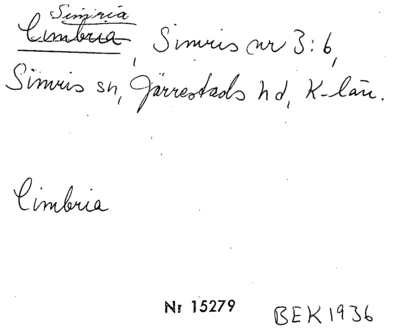 Simria
Cimbria, Simris nr 3:6,
Simris sn, Järrestads hd, K-län.
Cimbria
Nr 15279 BEK 1936